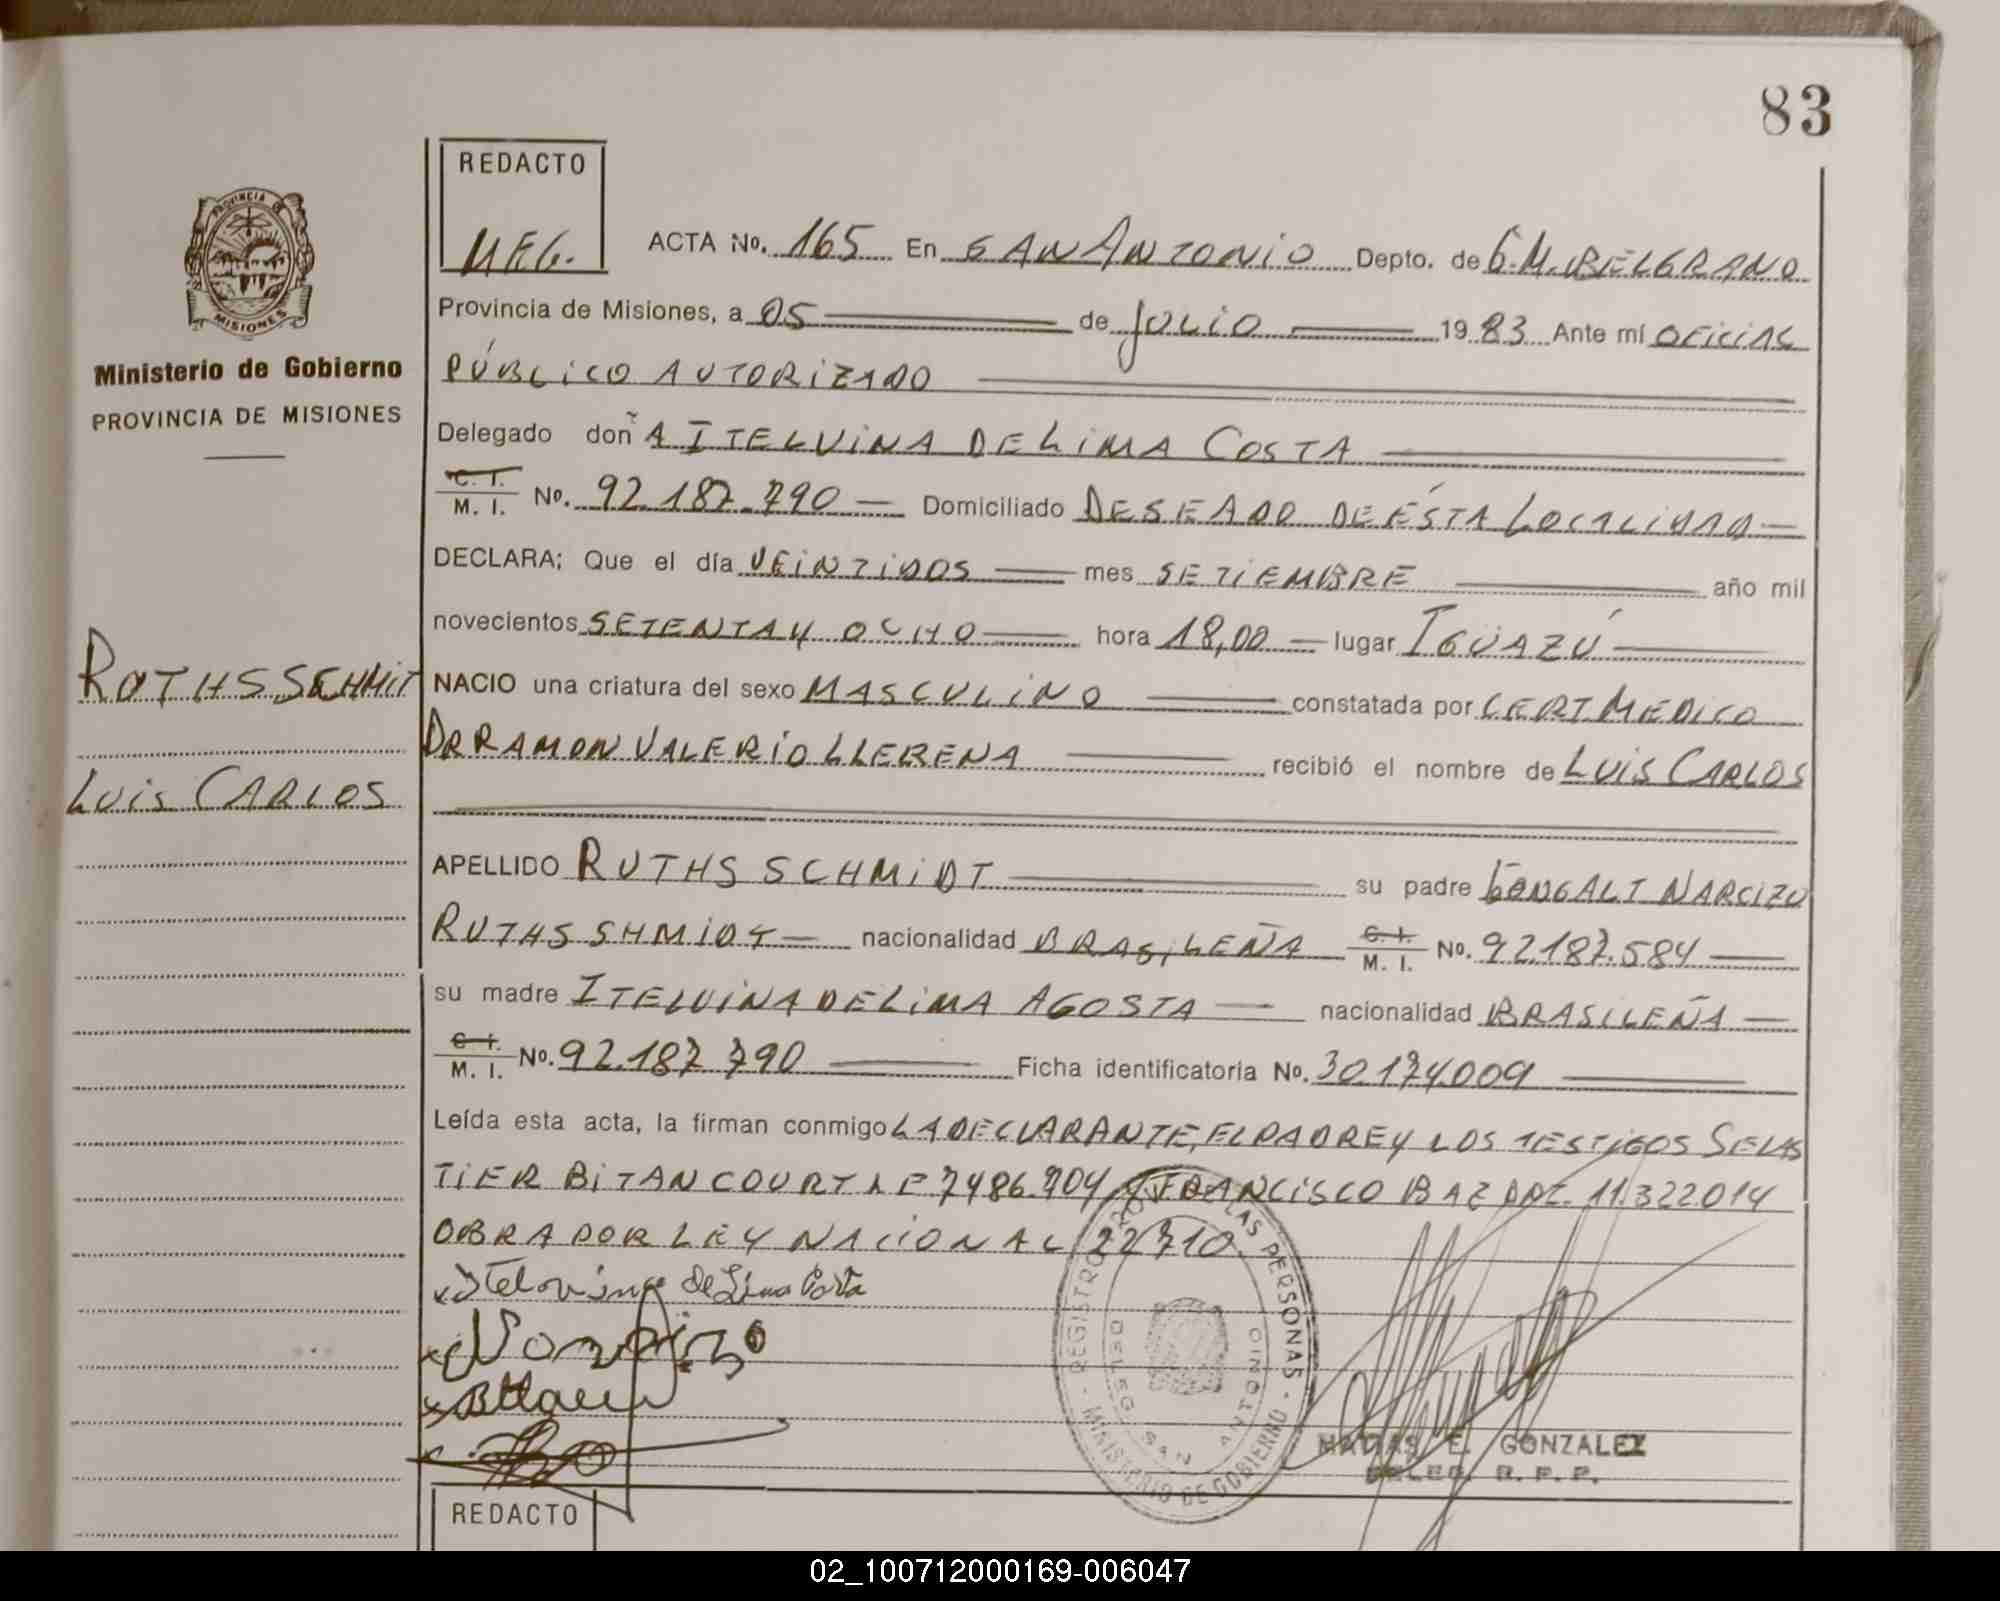 83
REDACTO
M.E.G.
PROVINCIA DE
MISIONES
Ministerio de Gobierno
PROVINCIA DE MISIONES
ACTA No. 165 En SAN ANTONIO Depto. de G.M. BELGRANO
Provincia de Misiones, a 05 de JULIO 1983 Ante mí OFICIAL
PÚBLICO AUTORIZADO
Delegado doñA ITELVINA DE LIMA COSTA
C. I. M. I. No. 92.187.790 Domiciliado DESEADO DE ÉSTA LOCALIDAD
DECLARA; Que el día VEINTIDOS mes SETIEMBRE año mil
novecientos SETENTA Y OCHO hora 18,00 lugar IGUAZÚ
RUTHS SCHMIT
NACIO una criatura del sexo MASCULINO constatada por CERT MEDICO
DR RAMON VALERIO LLERENA recibió el nombre de LUIS CARLOS
LUIS CARLOS
APELLIDO RUTHS SCHMIDT su padre NARCIZO
RUTHS SHMIDT nacionalidad BRASILEÑA C. I. M. I. No. 92.187.584
su madre ITELVINA DE LIMA AGOSTA nacionalidad BRASILEÑA
C. I. M. I. No. 92.187.790 Ficha identificatoria No. 30.174.009
Leída esta acta, la firman conmigo LA DECLARANTE, EL PADRE Y LOS TESTIGOS
TIER BITANCOURT LE 7486.704 Y FRANCISCO BAEZ DNI. 11.322.014
OBRADO POR LEY NACIONAL 22710
Itelvina de Lima Costa
Narcizo
REGISTRO PROV. DE LAS PERSONAS - MINISTERIO DE GOBIERNO -
DELEG. SAN ANTONIO
MATIAS E. GONZALEZ
DELEG. R. P. P.
REDACTO
02_100712000169-006047